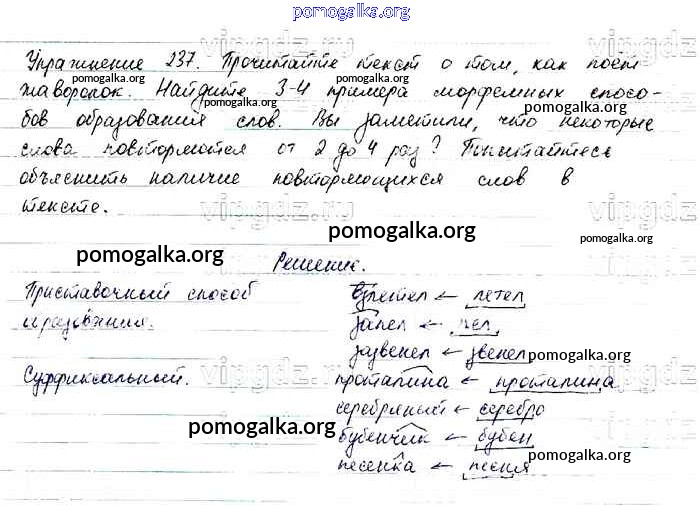 pomogalka.org
Упражнение 237. Прочитайте текст о том, как поёт
pomogalka.org pomogalka.org
жаворонок. Найдите 3-4 примера морфемных спосо-
pomogalka.org
бов образования слов. Вы заметили, что некоторые
pomogalka.org
слова повторяются от 2 до 4 раз? Попытайтесь
объяснить наличие повторяющихся слов в
тексте.
vipgdz.ru vipgdz.ru
pomogalka.org pomogalka.org pomogalka.org
Решение.
Приставочный способ взлетел ← летел
pomogalka.org
образования. запел ← пел
зазвенел ← звенел
vipgdz.ru vipgdz.ru
pomogalka.org
Суффиксальный. проталина ← проталина
pomogalka.org
серебряный ← серебро
pomogalka.org
бубенчик ← бубен
песенка ← песня
pomogalka.org